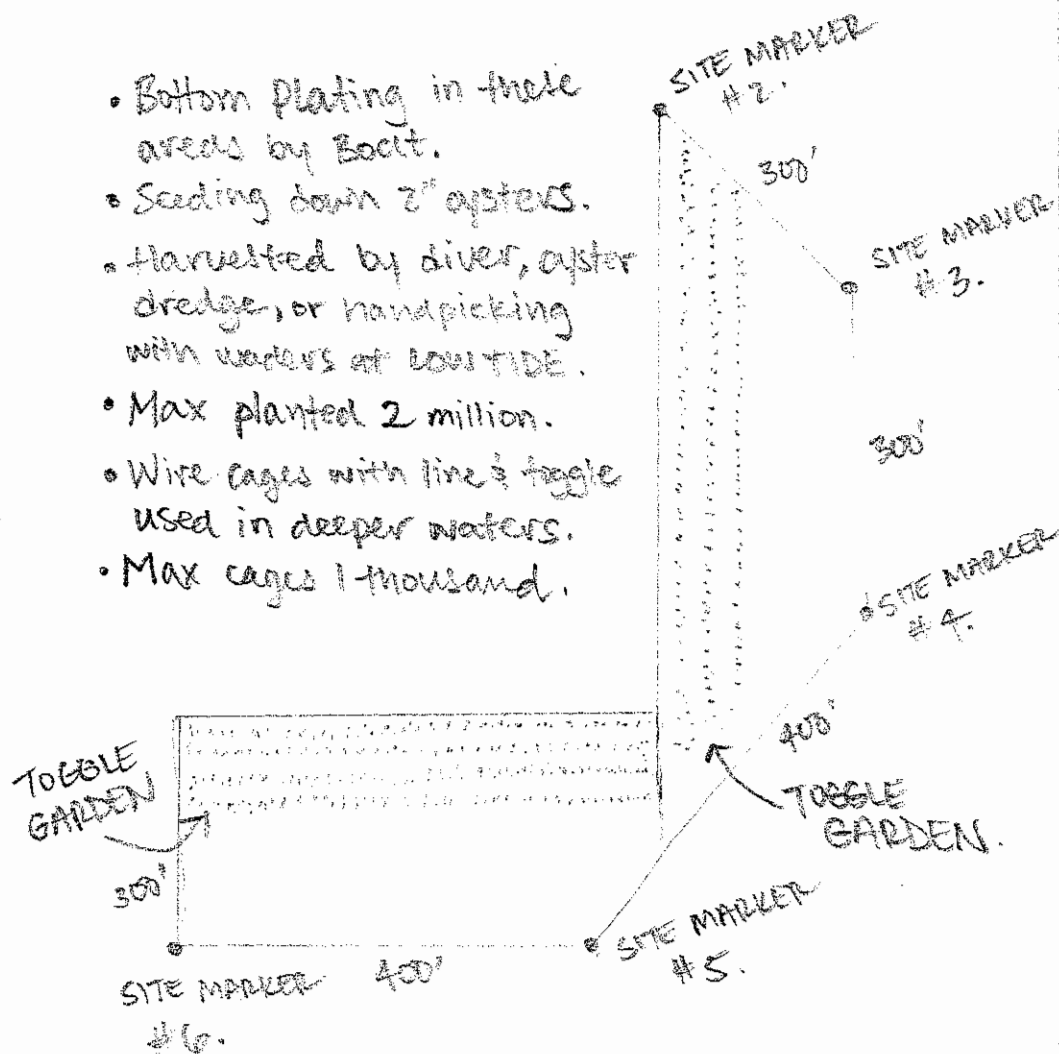 • Bottom Plating in these
areas by Boat.
• Seeding down 2" oysters.
• Harvested by diver, oyster
dredge, or handpicking
with waders at LOW TIDE.
• Max planted 2 million.
• Wire cages with line & toggle
used in deeper waters.
• Max cages 1 thousand.
SITE MARKER
#2.
300'
SITE MARKER
#3.
300'
SITE MARKER
#4.
400'
TOGGLE
GARDEN.
TOGGLE
GARDEN
300'
SITE MARKER
#5.
400'
SITE MARKER
#6.